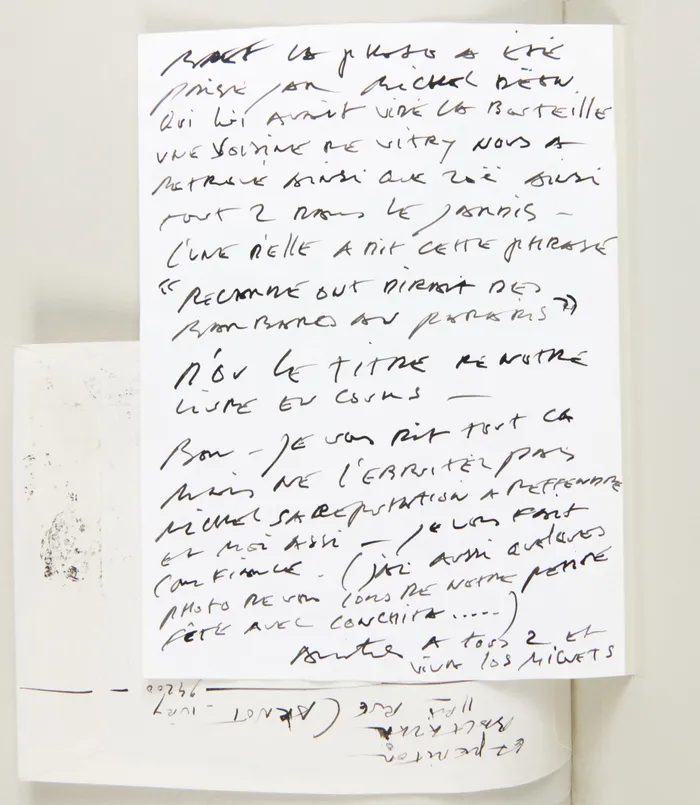 BREF LA PHOTO A ÉTÉ
PRISE PAR MICHEL DÉON
QUI LUI AVAIT VIDÉ LA BOUTEILLE
UNE VOISINE DE VITRY NOUS A
RETROUVÉ AINSI QUE ZOÉ AINSI
TOUT 2 DANS LE JARDIN —
L'UNE D'ELLE A DIT CETTE PHRASE
" REGARDE ONT DIRAIT DES
BARBARES AU PARADIS "
D'OU LE TITRE DE NOTRE
LIVRE EN COURS —
BON — JE VOUS DIT TOUT CA
MAIS NE L'EBRUITEZ PAS
MICHEL SA REPUTATION A DEFFENDRE
ET MOI AUSSI — JE VOUS FAIT
CONFIANCE. (J'AI AUSSI QUELQUES
PHOTO DE VOUS LORS DE NOTRE PETITE
FÊTE AVEC CONCHITA .....)
A TOUS 2 ET
VIVA LOS MIGUETS
EXPEDITEUR
RUE CARNOT - IVRY
94200